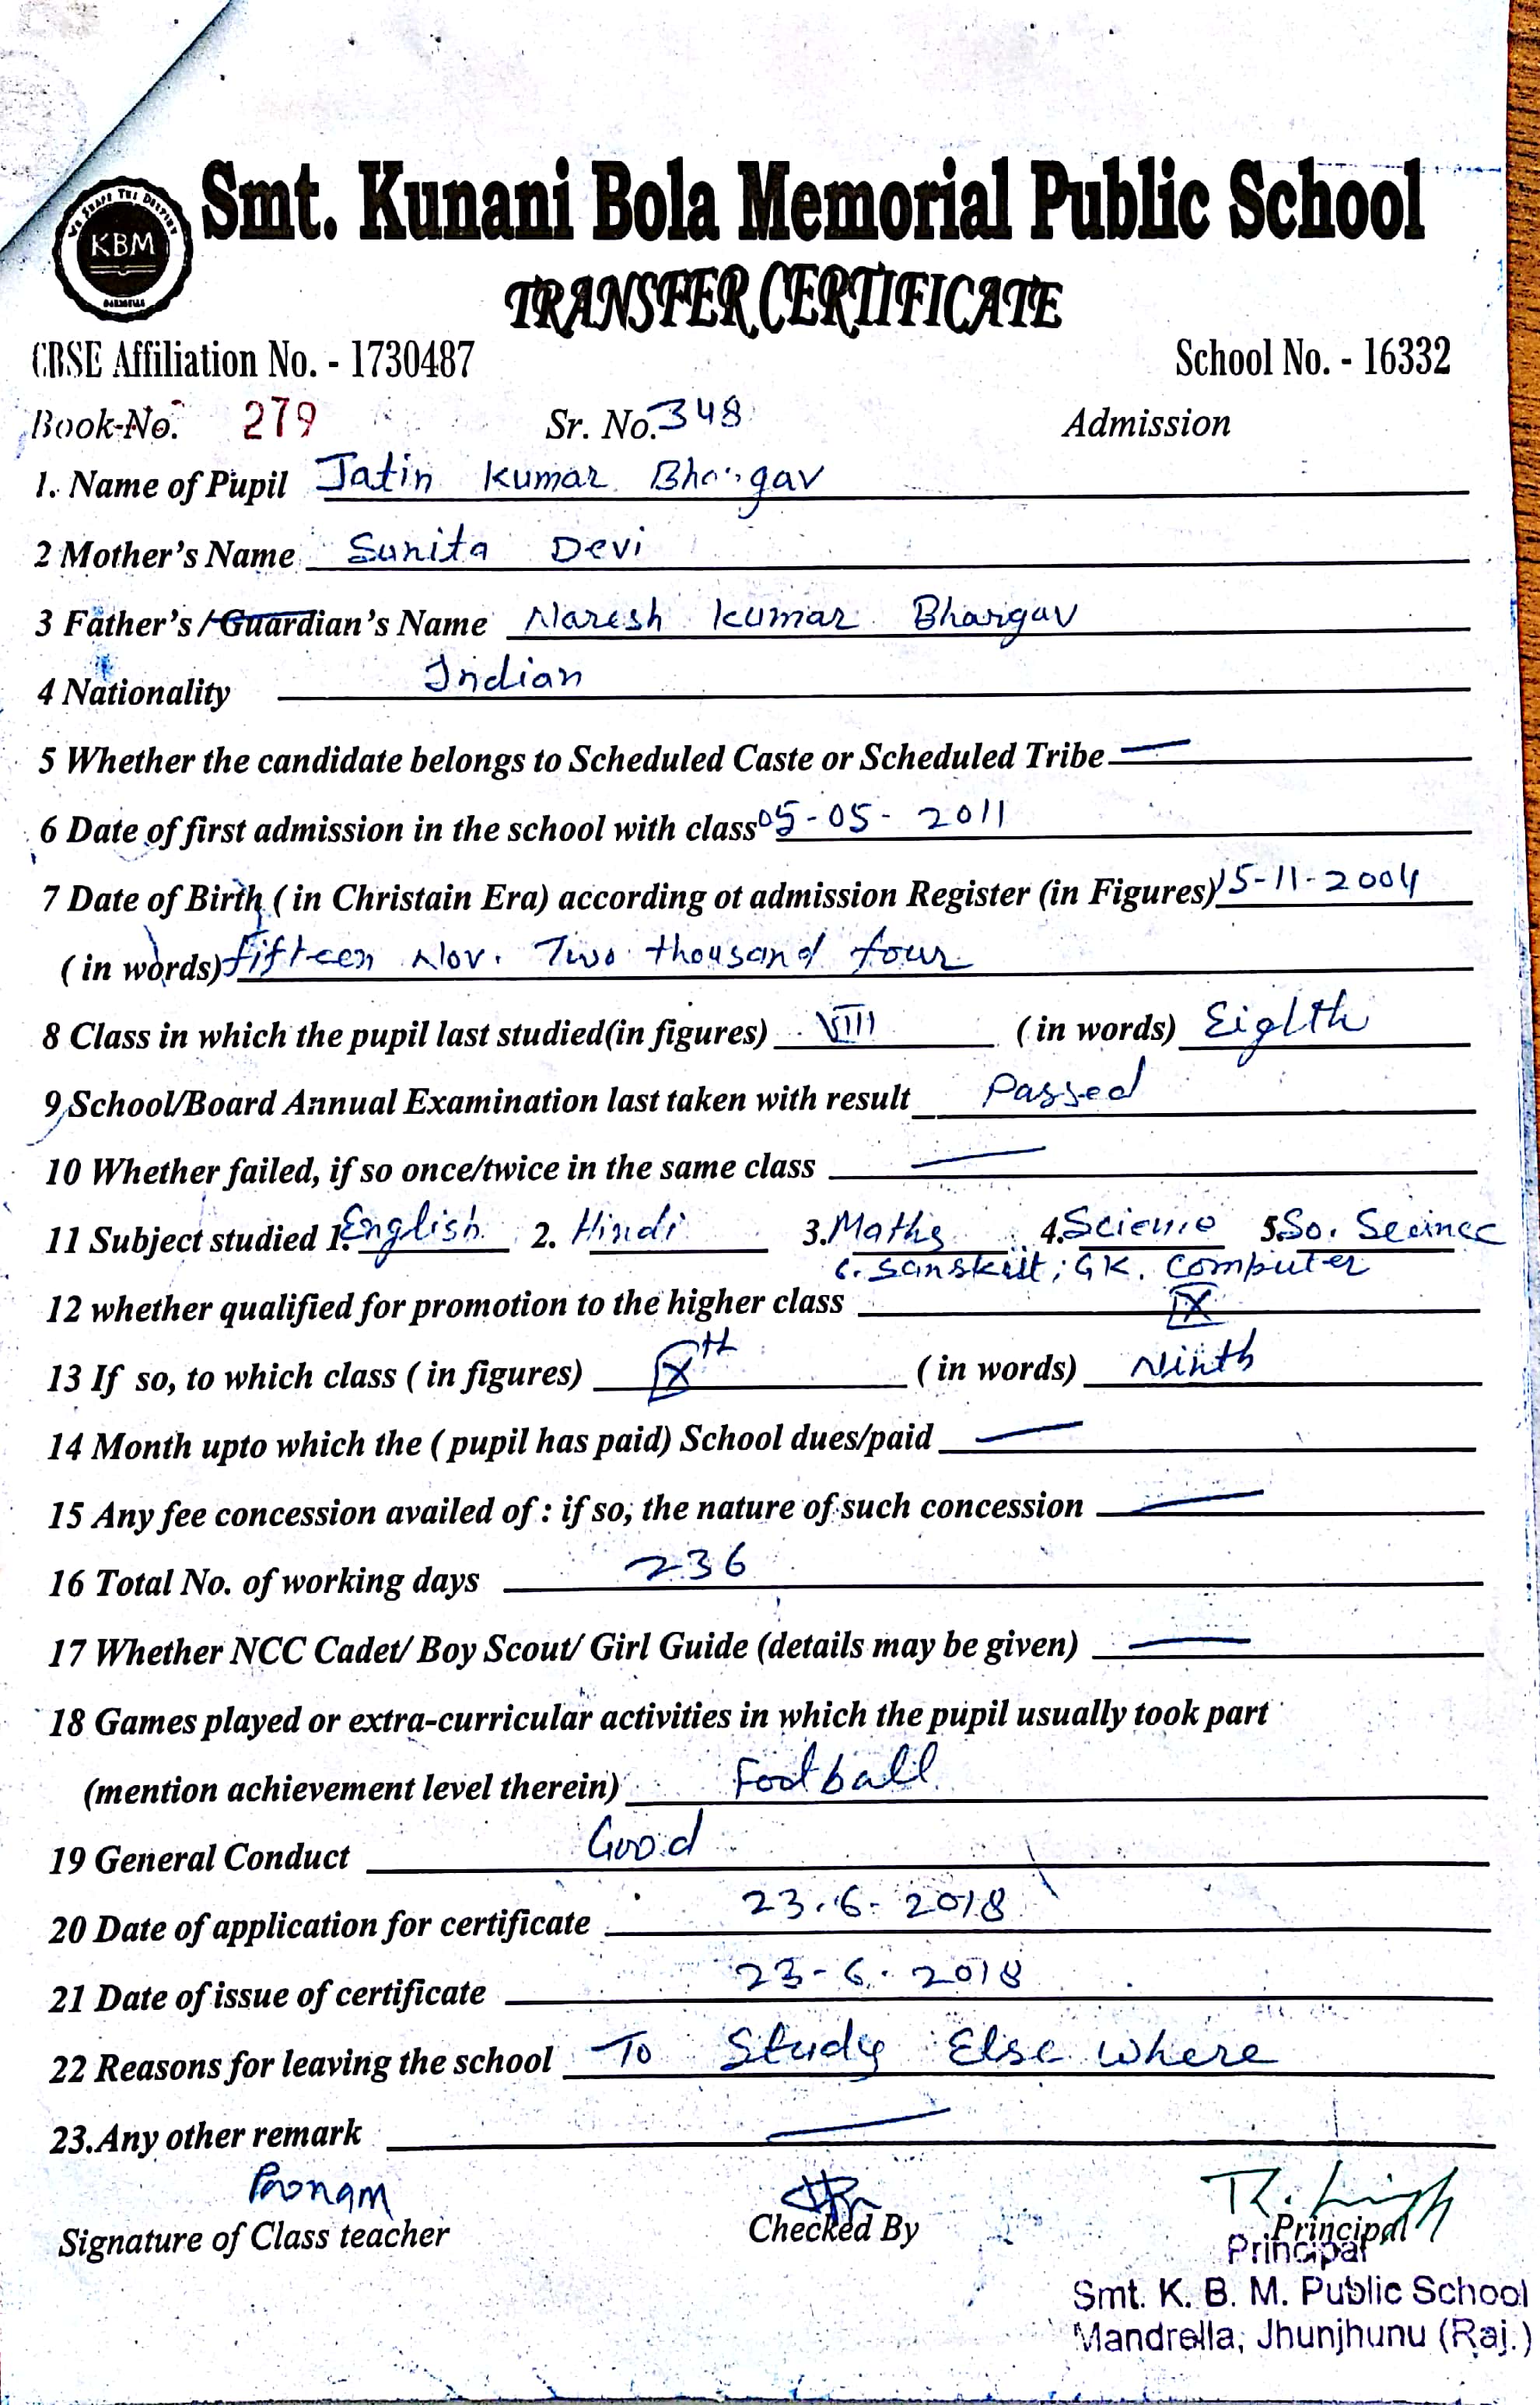 Smt. Kunani Bola Memorial Public School
KBM
TRANSFER CERTIFICATE
CBSE Affiliation No. - 1730487 School No. - 16332
Book No. 279 Sr. No. 348 Admission
1. Name of Pupil Jatin Kumar Bhargav
2 Mother's Name Sunita Devi
3 Father's / Guardian's Name Naresh Kumar Bhargav
4 Nationality Indian
5 Whether the candidate belongs to Scheduled Caste or Scheduled Tribe —
6 Date of first admission in the school with class 05-05-2011
7 Date of Birth ( in Christain Era) according ot admission Register (in Figures) 15-11-2004
( in words) fifteen Nov. Two thousand four
8 Class in which the pupil last studied(in figures) VIII ( in words) Eighth
9 School/Board Annual Examination last taken with result Passed
10 Whether failed, if so once/twice in the same class —
11 Subject studied 1. English 2. Hindi 3. Maths 4. Science 5. So. Secince
6. Sanskrit; GK. Computer
12 whether qualified for promotion to the higher class IX
13 If so, to which class ( in figures) IXth ( in words) Ninth
14 Month upto which the ( pupil has paid) School dues/paid —
15 Any fee concession availed of : if so, the nature of such concession —
16 Total No. of working days 236
17 Whether NCC Cadet/ Boy Scout/ Girl Guide (details may be given) —
18 Games played or extra-curricular activities in which the pupil usually took part
(mention achievement level therein) Football
19 General Conduct Good
20 Date of application for certificate 23.6.2018
21 Date of issue of certificate 23-6.2018
22 Reasons for leaving the school To Study Else where
23.Any other remark —
Poonam
Signature of Class teacher Checked By Principal
Principal
Smt. K. B. M. Public School
Mandrella, Jhunjhunu (Raj.)